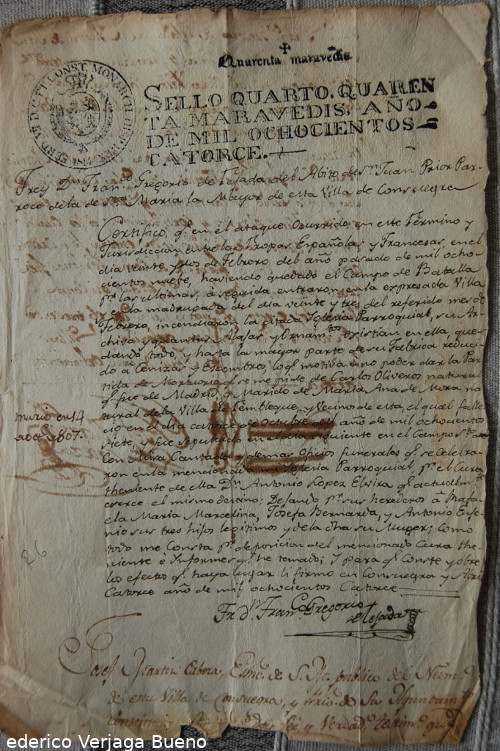 Quarenta maravedis.
SELLO QUARTO, QUAREN
TA MARAVEDIS, AÑO
DE MIL OCHOCIENTOS
CATORCE.
Frey Dn. Franco. Gregorio de Tejada del Abito de Sn. Juan Prior Par
roco de la de Sta. Maria la Mayor de esta Villa de Consuegra
Certifico, qe. en el ataque ocurrido en este Termino y
Jurisdiccion entre las tropas Españolas y Francesas, en el
dia veinte y dos de Febrero del año pasado de mil ocho
cientos nueve, haviendo quedado el Campo de Batalla
pr. las ultimas, a seguida entraron en la expresada Villa
y la madrugada del dia veinte y tres del referido mes de
Febrero, incendiaron la citada Iglesia Parroquial, su Ar
chivo y quantas Alajas y Ornamtos. existian en ella, que
dando todo, y hasta la mayor parte de su Fabrica reduci
do a Cenizas y Escombros, lo qe. motiva a no poder dar la Par
tida de Mortuorio qe. se me pide de Carlos Oliveros natural
qe. fue de Madrid y Marido de Maria Ana de Mora na
tural de la Villa de Tembleque, y vecino de esta el qual falle
cio en el dia catorce de octubre del año de mil ochocientos
siete, y fue sepultado en el dia siguiente en el Campo Sto.
con Misa Cantada y demas Oficios funerales qe. se celebra
ron en la mencionada Iglesia Parroquial, pr. el Cura
theniente de ella Dn. Antonio Lopez Elvira qe. actualmte.
exerce el mismo destino; Dejando pr. sus herederos a Rafa
ela Maria Marcelina, Josefa Bernarda, y Antonio Euse
nio sus tres hijos legitimos y de la dha su Muger; como
todo me Consta pr. deposicion del mencionado Cura the
niente e Informes qe. he tomado; Y para qe. Conste y obre
los efectos qe. haya lugar lo firmo en Consuegra y
Catorce año de mil ochocientos Catorce
Fr. Dn. Franco. Gregorio
de Tejada
murio en 14
de 1807.
26
Josef Martin Cabera, Esno. de S. M. publico del Num.
de esta Villa de Consuegra, y
ederico Verjaga Bueno